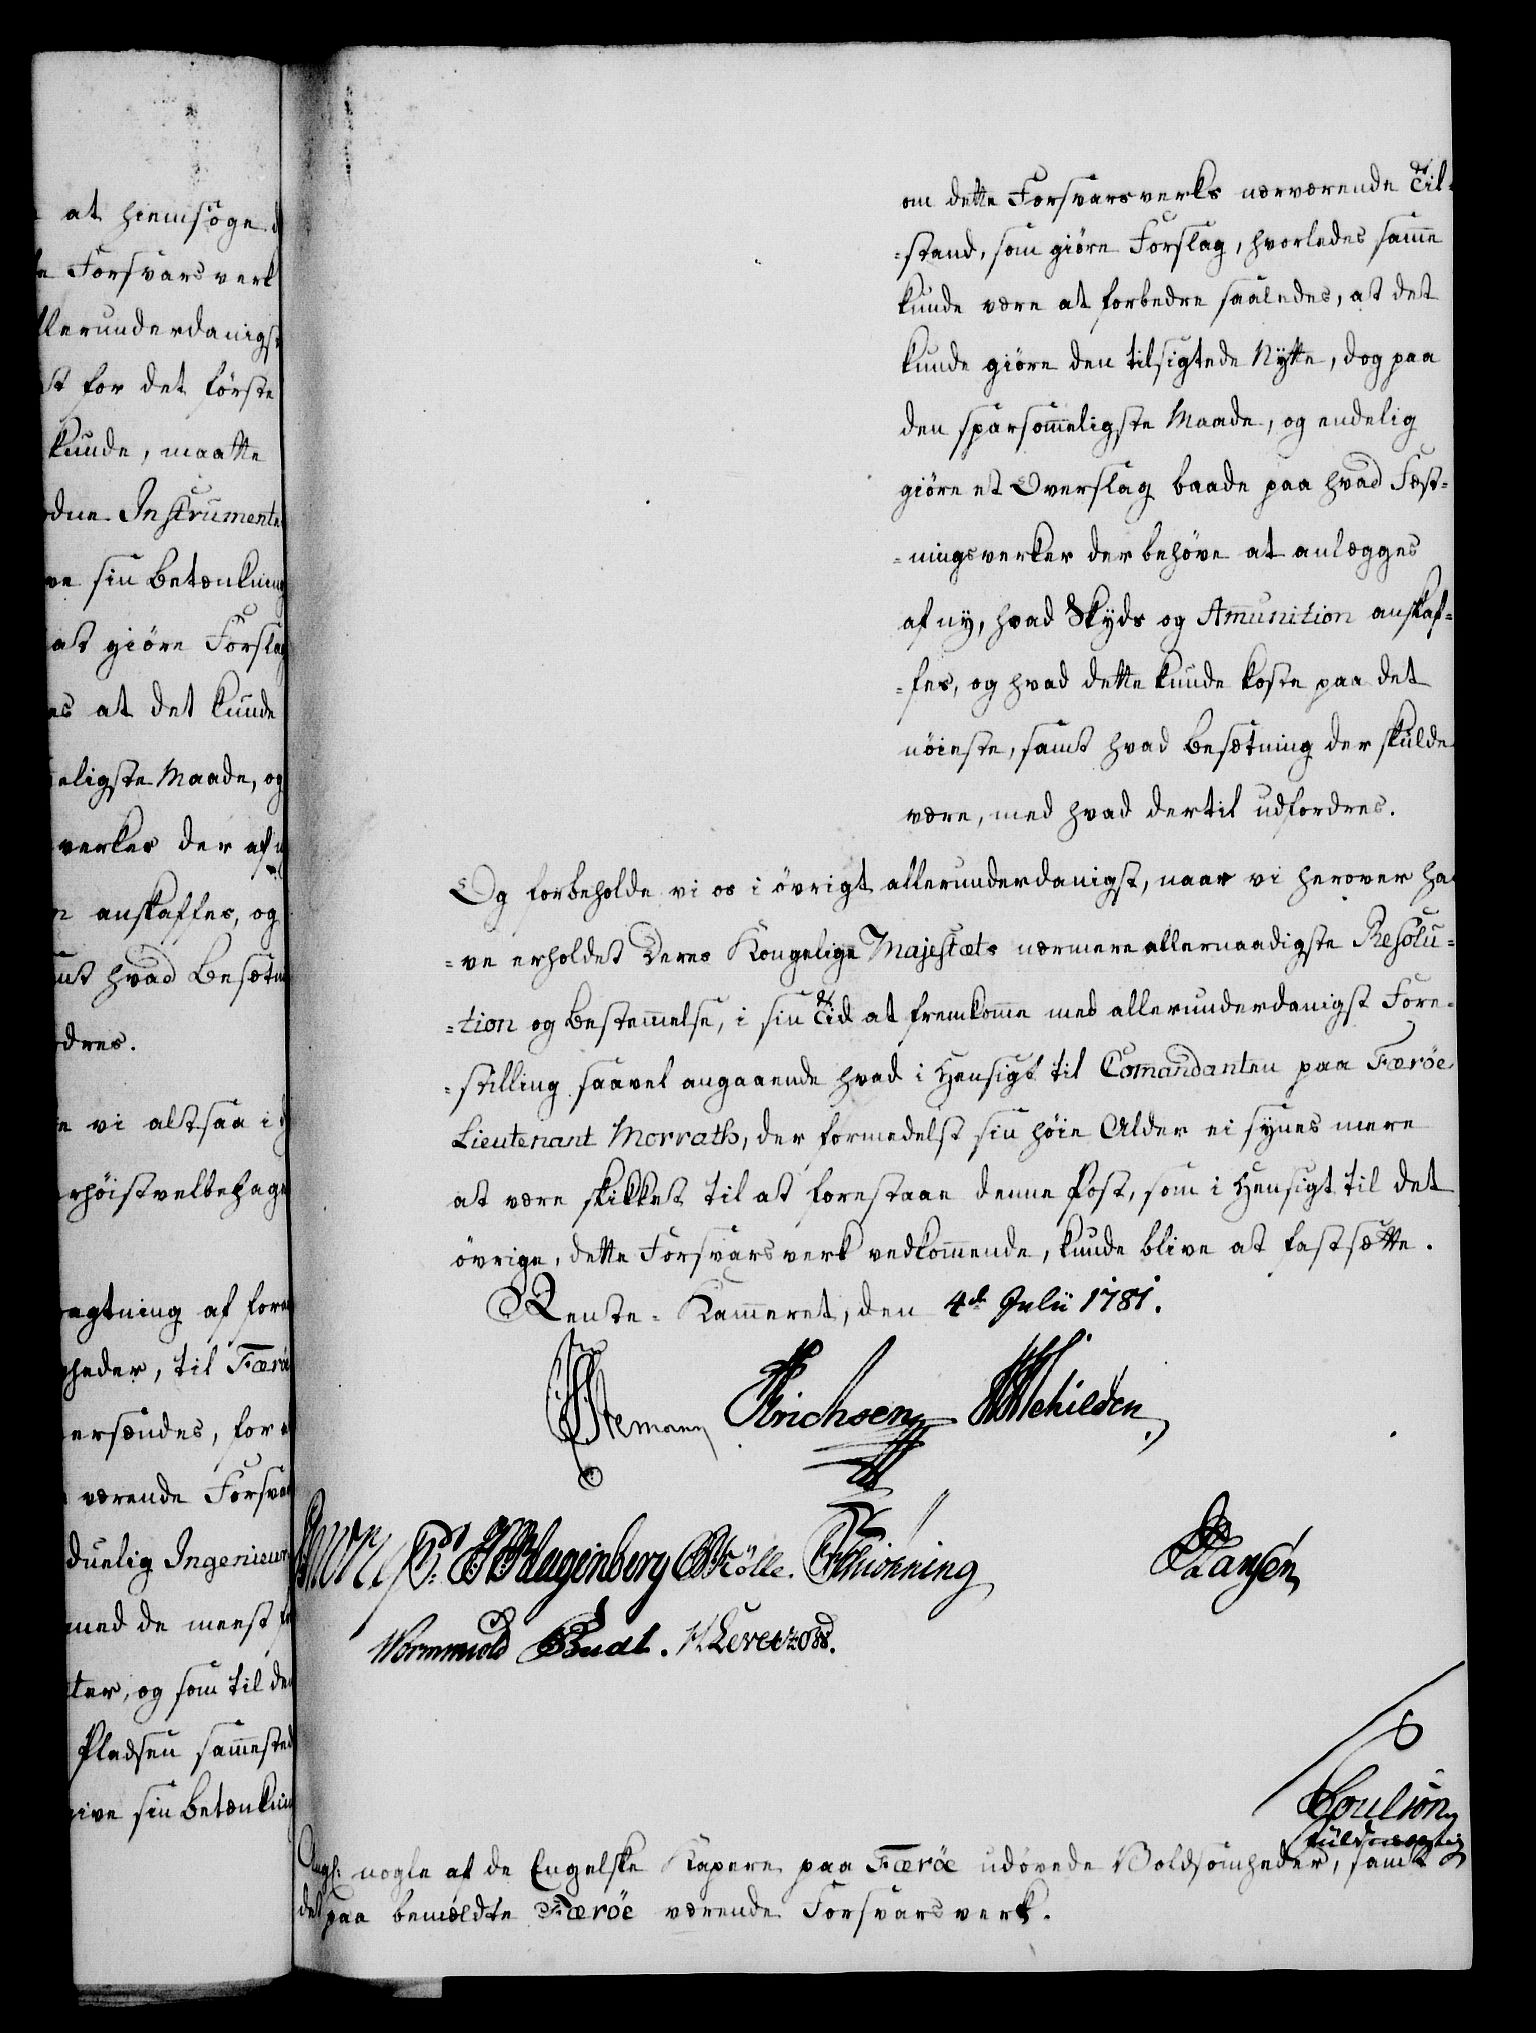 at hiemsøge d
e Forsvarsverk
llerunderdanigst
st for det første
kunde, maatte
dne Instrumente
ve sin Betænkning
at giöre Forslag
es at det kunde
eligste Maade, og
verker der af n
n anskaffes, og
mt hvad Besætn
dres.
e vi altsaa i
rhöistvelbehage
agtning af for
heder, til Færöe
ersendes, for
værende Forsva
duelig Ingenieur
med de meest f
ter, og som til de
Pladsen sammested
ive sin Betænkni
om dette Forsvarsverks nærværende Til-
-stand, som giöre Forslag, hvorledes samme
kunde være at forbedre saaledes, at det
kunde giöre den tilsigtede Nytte, dog paa
den sparsomeligste Maade, og endelig
giöre et Overslag baade paa hvad Fæst-
-ningsverker der behöve at anlægges
af ny, hvad Skyds og Amunition anskaf-
-fes, og hvad dette kunde koste paa det
nöieste, samt hvad Besætning der skulde
være, med hvad dertil udfordres.
Og forbeholde vi os i övrigt allerunderdanigst, naar vi herover ha-
-ve erholdet Deres Kongelige Majestæts nærmere allernaadigste Resolu-
-tion og Bestemelse, i sin Tid at fremkomme med allerunderdanigst Fore-
-stilling saavel angaaende hvad i Hensigt til Comandanten paa Færöe
Lieutenant Morrath, der formedelst sin höie Alder ei synes mere
at være skikket til at forestaae denne Post, som i Hensigt til det
övrige, dette Forsvarsverk vedkommende, kunde blive at fastsætte.
Rente-Kammeret, den 4de Julii 1781.
Stemann Erichsen Schilden
Klagenberg Mölle. Schiönning Hansen
Wormskiold Budt. Levetzow.
Poulson
fuldmægtig
Angl: nogle af de Engelske Kapere paa Færöe udövede Voldsomheder, samt
det paa bemeldte Færöe værende Forsvarsverk.